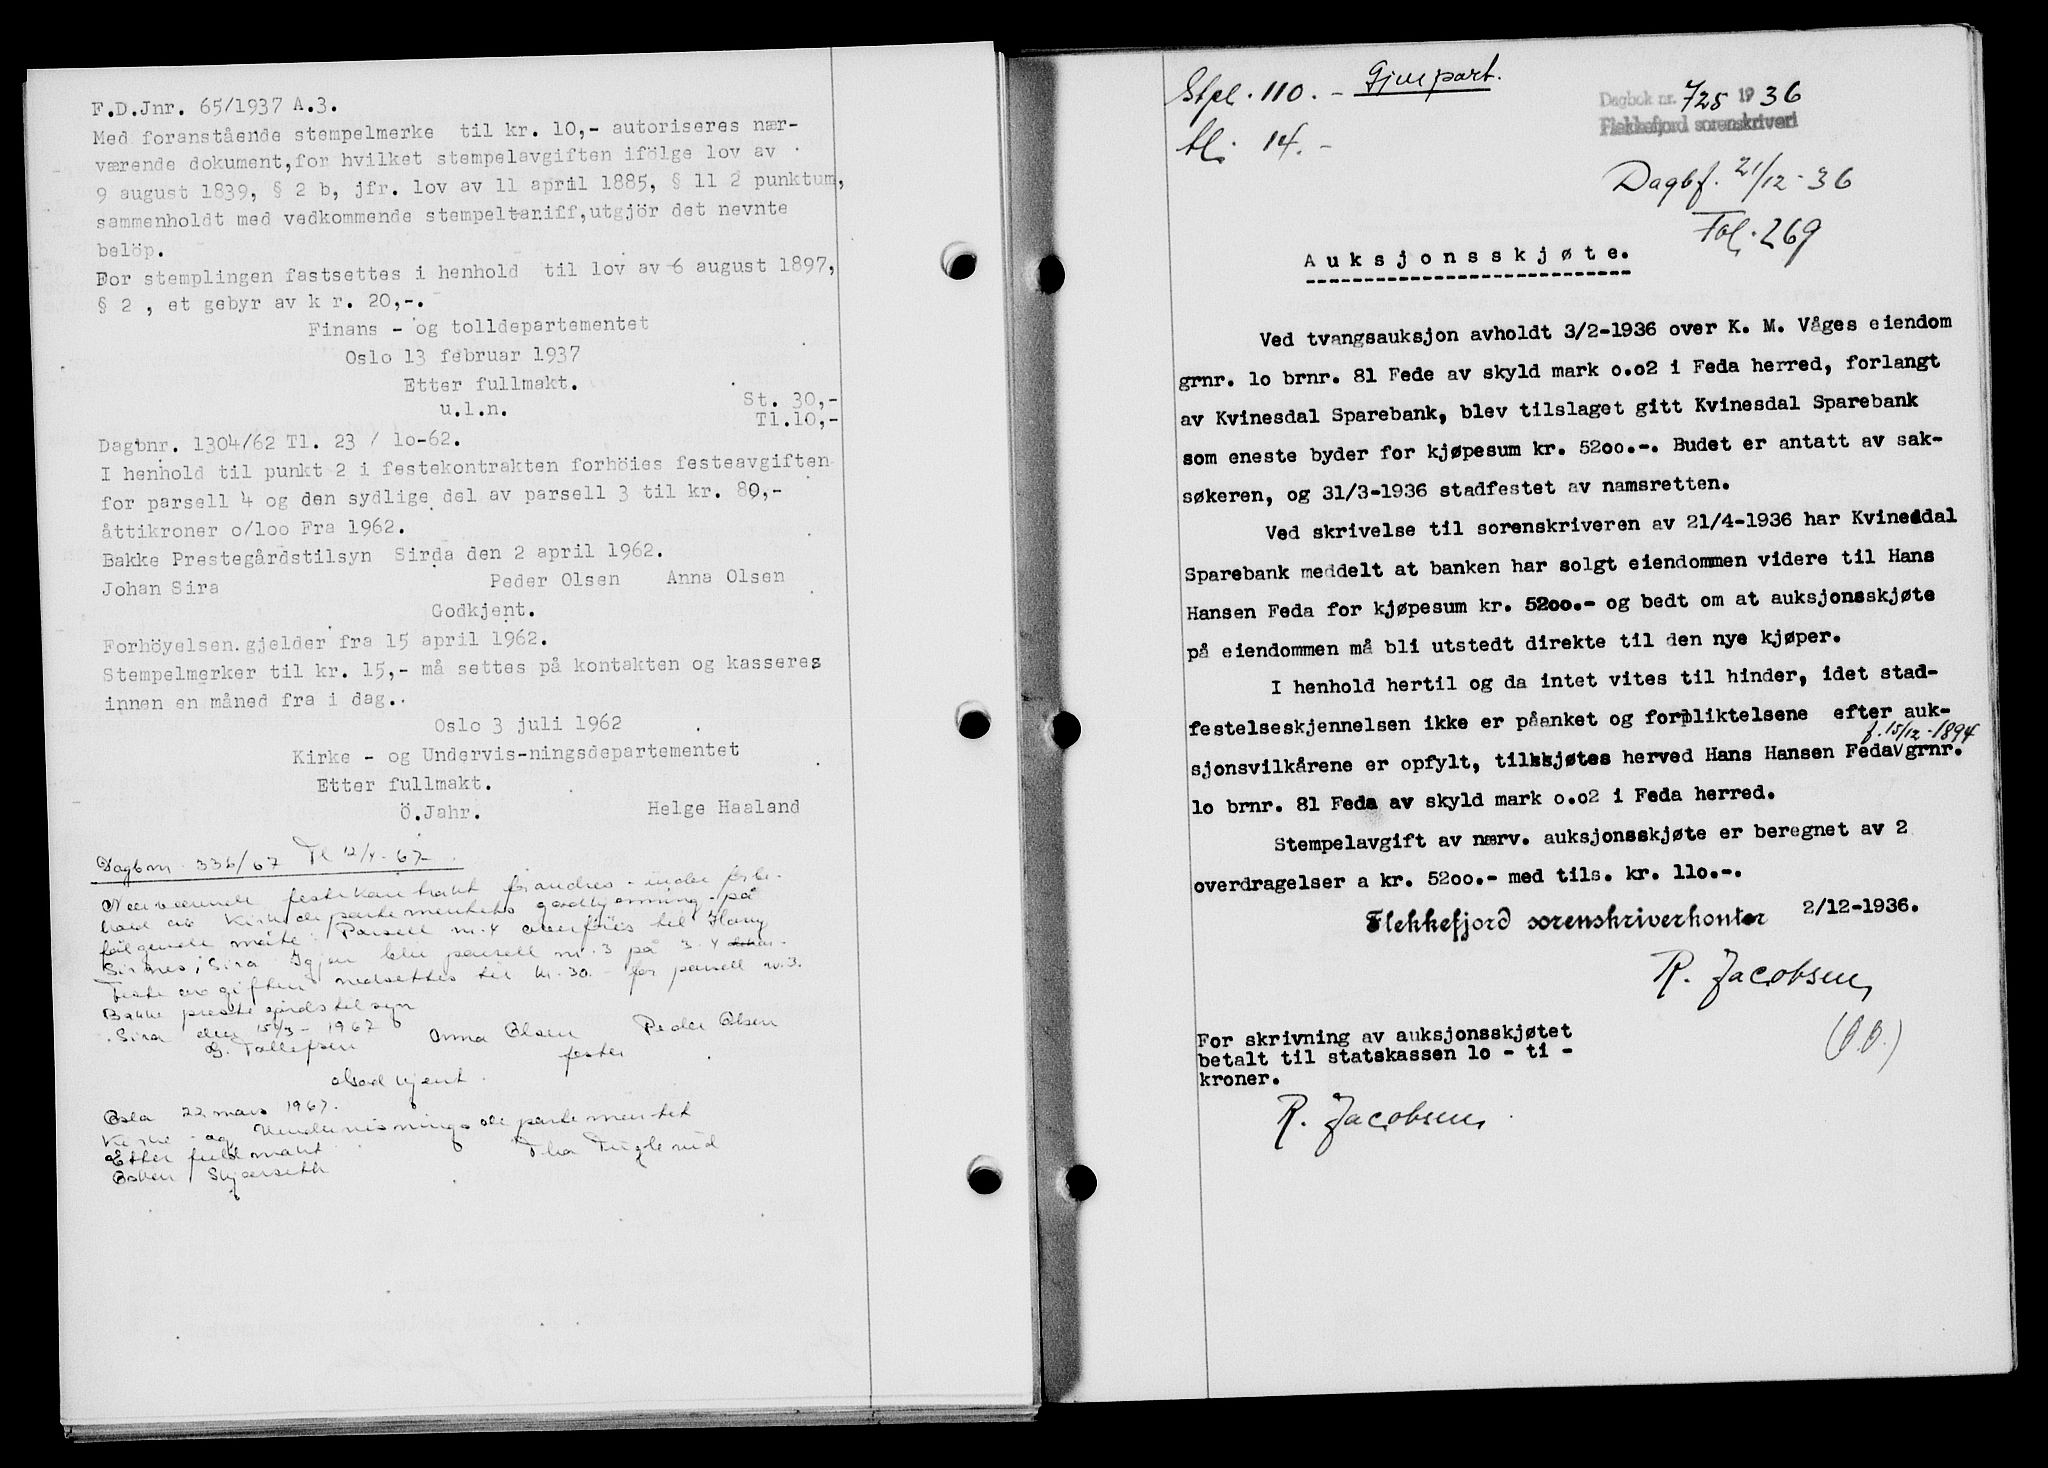 F.D.Jnr. 65/1937 A.3.
Med foranstående stempelmerke til kr. 10,- autoriseres nær-
værende dokument,for hvilket stempelavgiften ifölge lov av
9 august 1839, § 2 b, jfr. lov av 11 april 1885, § 11 2 punktum,
sammenholdt med vedkommende stempeltariff,utgjör det nevnte
belöp.
For stemplingen fastsettes i henhold til lov av 6 august 1897,
§ 2 , et gebyr av k r. 20,-.
Finans - og tolldepartementet
Oslo 13 februar 1937
Etter fullmakt.
u.l.n.
St. 30,-
Tl.10,-
Dagbnr. 1304/62 Tl. 23 / lo-62.
I henhold til punkt 2 i festekontrakten forhöies festeavgiften
for parsell 4 og den sydlige del av parsell 3 til kr. 80,-
åttikroner o/loo Fra 1962.
Bakke Prestegårdstilsyn Sirda den 2 april 1962.
Johan Sira Peder Olsen Anna Olsen
Godkjent.
Forhöyelsen gjelder fra 15 april 1962.
Stempelmerker til kr. 15,- må settes på kontakten og kasseres
innen en måned fra i dag..
Oslo 3 juli 1962
Kirke - og Undervis-ningsdepartementet
Etter fullmakt.
Ö.Jahr. Helge Haaland
Dagbnr. 336/67 Tl 12/4-67
Nærværende festekontrakt forandres - under forbe-
hold av Kirkedepartementets godkjenning - på
følgende måte: Parsell nr. 4 overføres til
Sirnes, Sira Igjen blir parsell nr. 3 på 3.4
Festeavgiften nedsettes til kr. 30.- for parsell nr. 3.
Bakke prestegårdstilsyn
Sira den 15/3-1967
G. Tollefsen Anna Olsen Peder Olsen
fester
Godkjent.
Oslo 22 mars 1967.
Kirke og Undervisningsdepartementet
Etter fullmakt
Skjerseth
Stpl. 110.- Gjenpart.
tl. 14.-
Dagbok nr. 725 1936
Flekkefjord sorenskriveri
Dagbf. 21/12-36
Fol. 269
Auksjonsskjøte.
Ved tvangsauksjon avholdt 3/2-1936 over K. M. Våges eiendom
grnr. lo brnr. 81 Fede av skyld mark o.o2 i Feda herred, forlangt
av Kvinesdal Sparebank, blev tilslaget gitt Kvinesdal Sparebank
som eneste byder for kjøpesum kr. 52oo.-. Budet er antatt av sak-
søkeren, og 31/3-1936 stadfestet av namsretten.
Ved skrivelse til sorenskriveren av 21/4-1936 har Kvinesdal
Sparebank meddelt at banken har solgt eiendommen videre til Hans
Hansen Feda for kjøpesum kr. 52oo.- og bedt om at auksjonsskjøte
på eiendommen må bli utstedt direkte til den nye kjøper.
I henhold hertil og da intet vites til hinder, idet stad-
festelseskjennelsen ikke er påanket og forpliktelsene efter auk-
f. 15/12-1894
sjonsvilkårene er opfylt, tilskjøtes herved Hans Hansen Feda V grnr.
lo brnr. 81 Feda av skyld mark o.o2 i Feda herred.
Stempelavgift av nærv. auksjonsskjøte er beregnet av 2
overdragelser a kr. 52oo.- med tils. kr. llo.-.
Flekkefjord sorenskriverkontor 2/12-1936.
R. Jacobsen
For skrivning av auksjonsskjøtet
betalt til statskassen lo - ti -
kroner.
R. Jacobsen